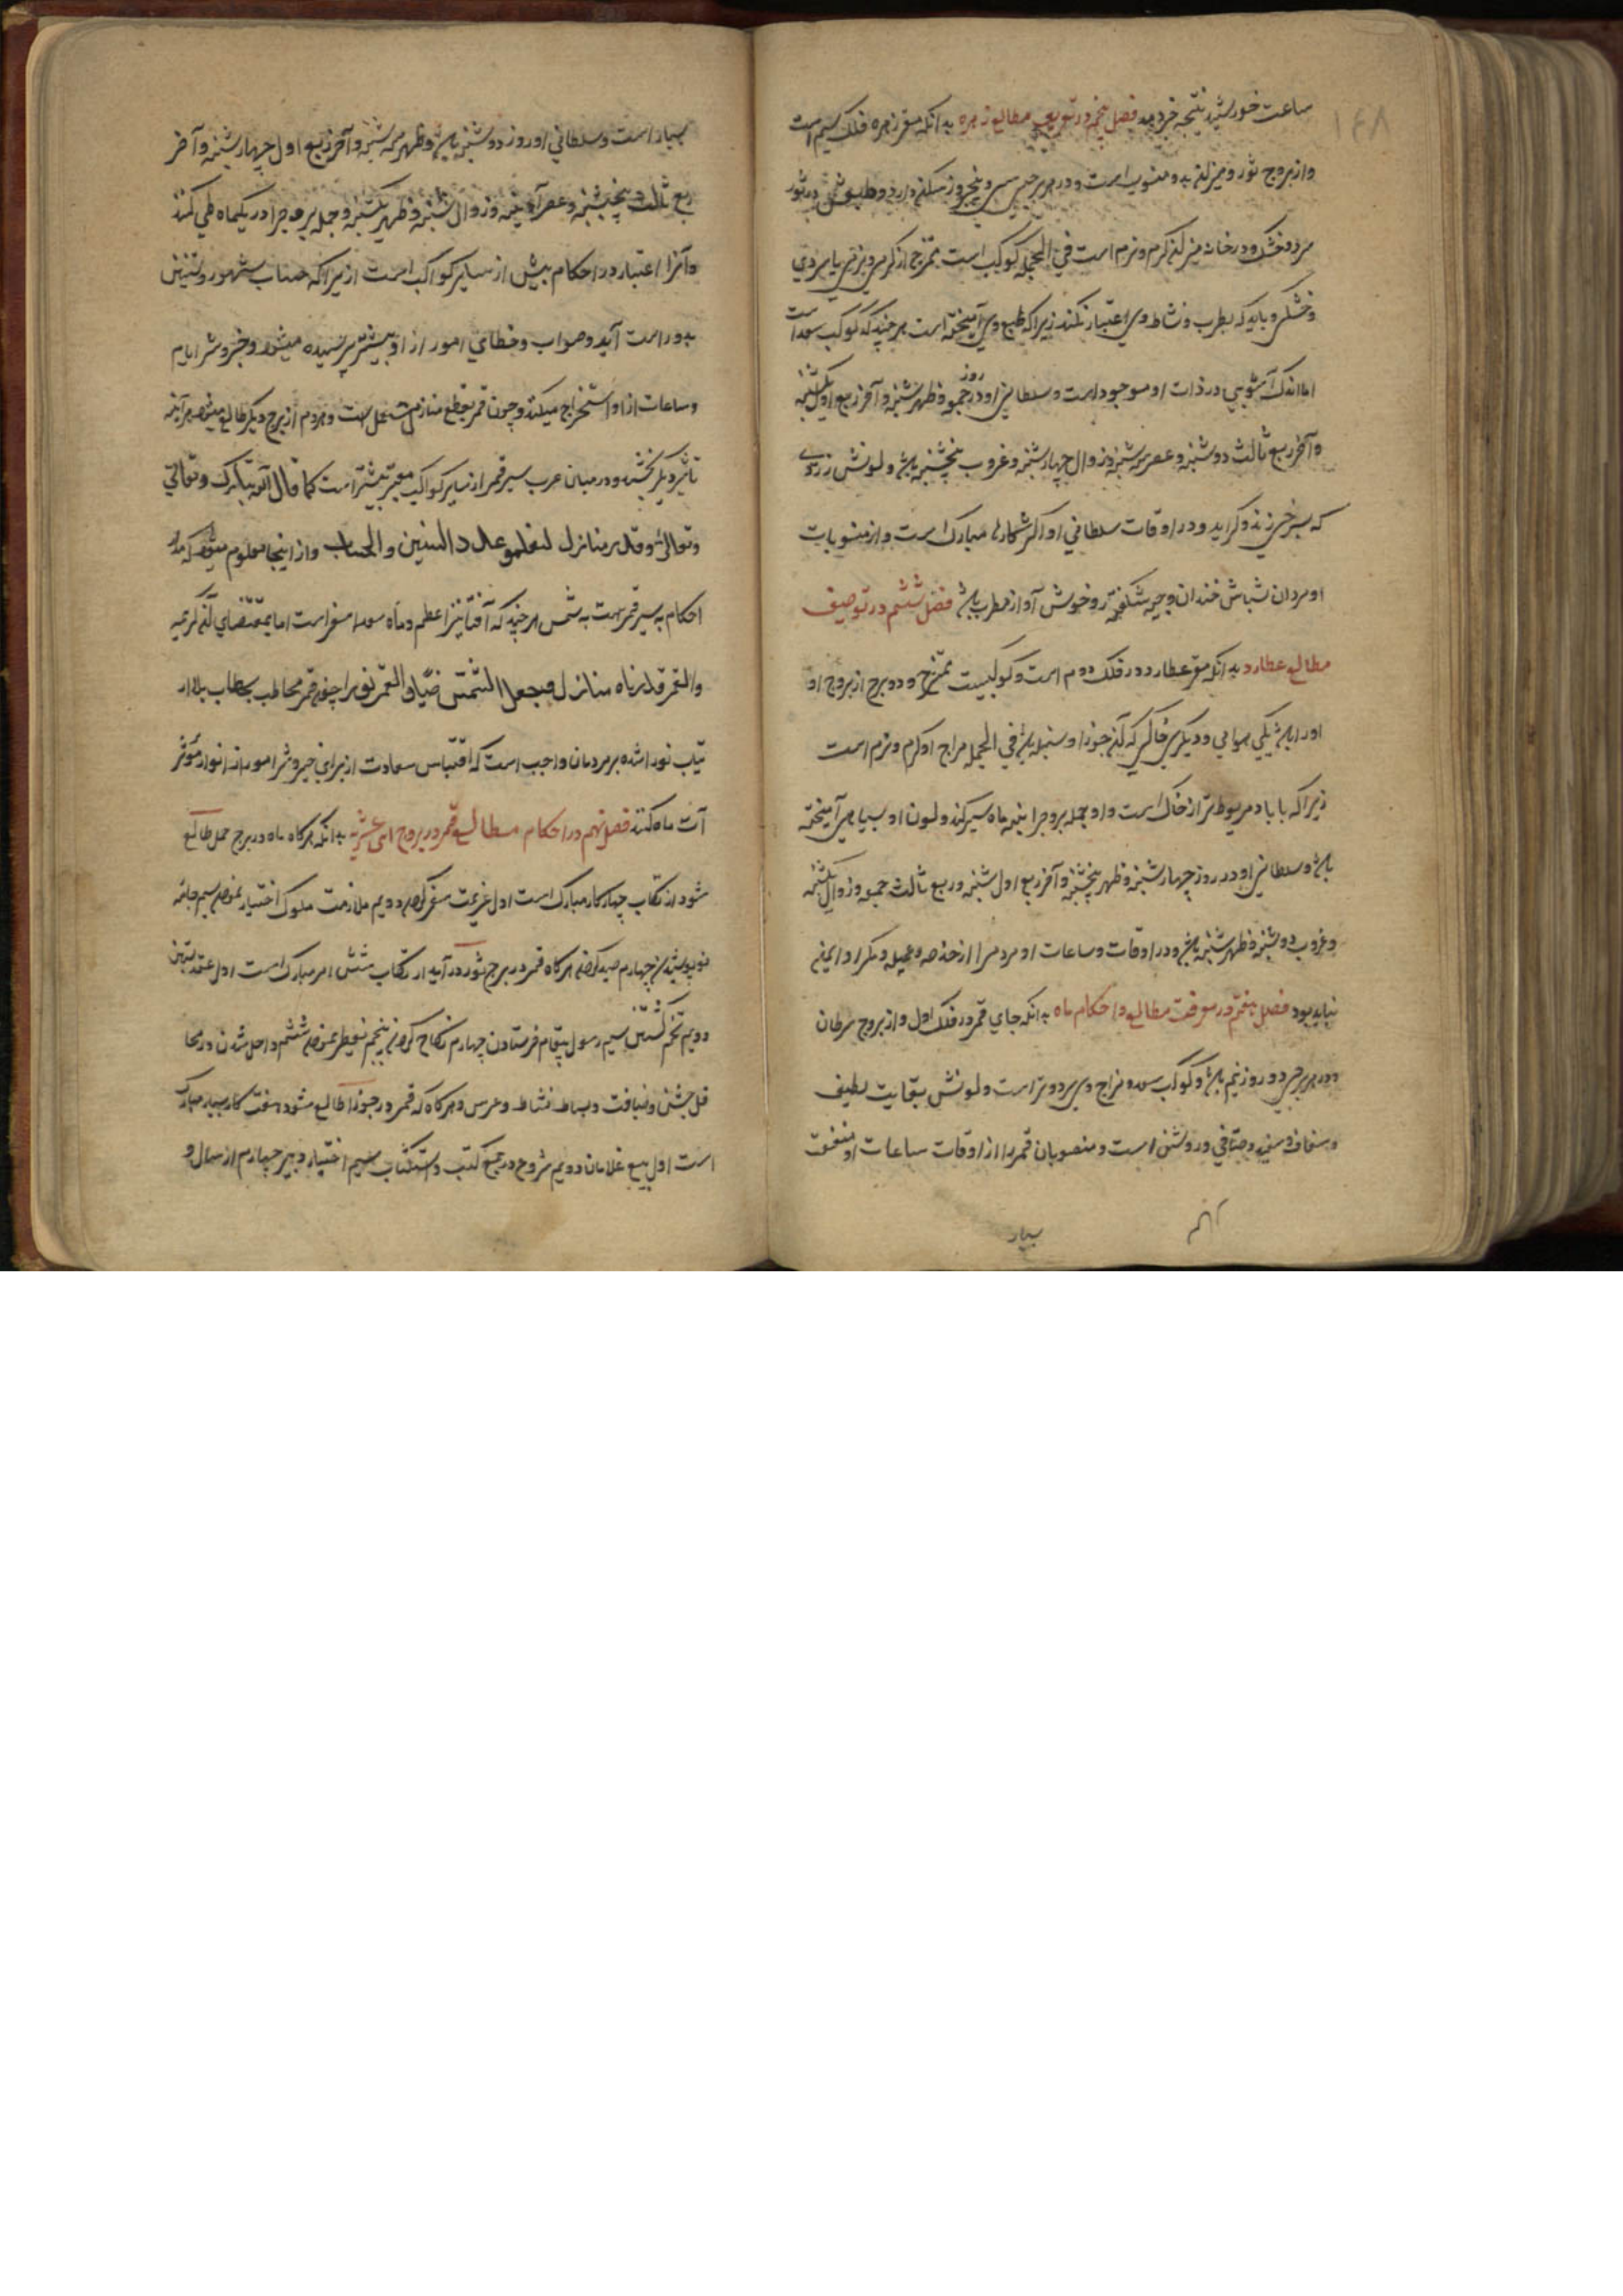 ۱۶۸
ساعت خورشید نتیجه خرد بد فصل پنجم در توصیف مطالع زهره بدانکه مقر زهره فلک سیم است
و از بروج ثور و میزان بدو منسوب است و در هر برجی بیست و پنج روز مسکن دارد و طبعش در ثور
سرد و خشک و در خانه میزان گرم و نرم است فی الجمله کوکب است ممتزج از گرمی و نرمی یا سردی
و خشکی و باید که بطرب و نشاط وی اعتبار نکند زیرا که طبع وی آمیخته است هر چند که کوکب سعد است
اما اندک آشوبی در ذات او موجود است و سلطانی او در روز جمعه و ظهر شنبه و آخر ربع اول یکشنبه
و آخر ربع ثالث دوشنبه و عصر سه شنبه و زوال چهارشنبه و غروب پنجشنبه باشد و لونش زردی
که بسرخی زند و گراید و در اوقات سلطانی او اکثر کارها مبارک است و از منسوبات
او مردان شباش خندان وجیه شکفته رو خوش آواز مطرب باشد فصل ششم در توصیف
مطالع عطارد بدانکه مقر عطارد در فلک دوم است و کوکبیست ممتزج و دو برج از بروج او
او را باشد یکی هوایی و دیگری خاکی که آن جوزا و سنبله باشد فی الجمله مزاج او گرم و نرم است
زیرا که با باد مربوط تر از خاک است و او جمله بروج را بنه ماه سیر کند و لون او بسیاهی آمیخته
باشد و سلطانی او در روز چهارشنبه و ظهر پنجشنبه و آخر ربع اول شنبه و ربع ثالث جمعه و زوال یکشنبه
و غروب دوشنبه و ظهر شنبه باشد و در اوقات و ساعات او مردم را از خدعه و حیله و مکر او ایمن
نباید بود فصل هفتم در معرفت مطالع و احکام ماه بدانکه جای قمر در فلک اول و از بروج سرطان
و در هر برجی دو روز نیم باشد و کوکب سعد و مزاج وی سرد و تر است و لونش بغایت لطیف
و شفاف و سفید و صافی و روشن است و منصوبان قمر را از اوقات ساعات او منفعت
بسیار
بسیار است و سلطانی او روز دوشنبه باشد و ظهر سه شنبه و آخر ربع اول چهارشنبه و آخر
ربع ثالث پنجشنبه و عصر آدینه و زوال شنبه و ظهر یکشنبه و جمله بروج را در یکماه طی کند
و آنرا اعتبار در احکام بیش از سایر کواکب است ازیرا که حساب شهور و سنین
بدو راست آید و صواب و خطای امور از او بیشتر پرسیده میشود و خیر و شر ایام
و ساعات از او استخراج میکند و چون قمر بقطع منازل مشتمل است و هر دم از برج دیگر طالع میشود هر آینه
تاثیر دیگر بخشد و در میان عرب سیر قمر از سایر کواکب معتبر بیشتر است کما قال الله تبارک و تعالی
و تعالی و قدره منازل لتعلموا عدد السنین و الحساب و از اینجا معلوم میشود که مدار
احکام به سیر قمر است به شمس هر چند که آفتاب نیز اعظم و ماه سعد اصغر است اما بمقتضای آن کریمه
والقمر قدرناه منازل و جعل الشمس ضیا و القمر نورا چون قمر مخاطب بخطاب بلا ار
تیاب نورا شده بر مردمان واجب است که اقتباس سعادت از برای خیر و شر امور از انوار مؤثر
آت ماه کنند فصل نهم در احکام مطالع قمر در بروج اثنی عشریه بدانکه هر کاه ماه در برج حمل طالع
شود ارتکاب چهار کار مبارک است اول عزیمت سفر کردن دویم ملازمت ملوک اختیار نمودن سیم جامه
نو پوشیدن چهارم صید کردن هر کاه قمر در برج ثور در آید ارتکاب شش امر مبارک است اول عقد بستن
دویم تخم کشتن سیم رسول پیغام فرستادن چهارم نکاح کردن پنجم تفطیر نمودن ششم داخل شدن در محا
فل جشنی و ضیافت و بساط نشاط و عرس و هر کاه که قمر در جوزا طالع شود هفت کار بسیار مبارک
است اول بیع غلامان دویم شروع در جمع کتب و استکتاب سیم اختیار دبیر چهارم ارسال و